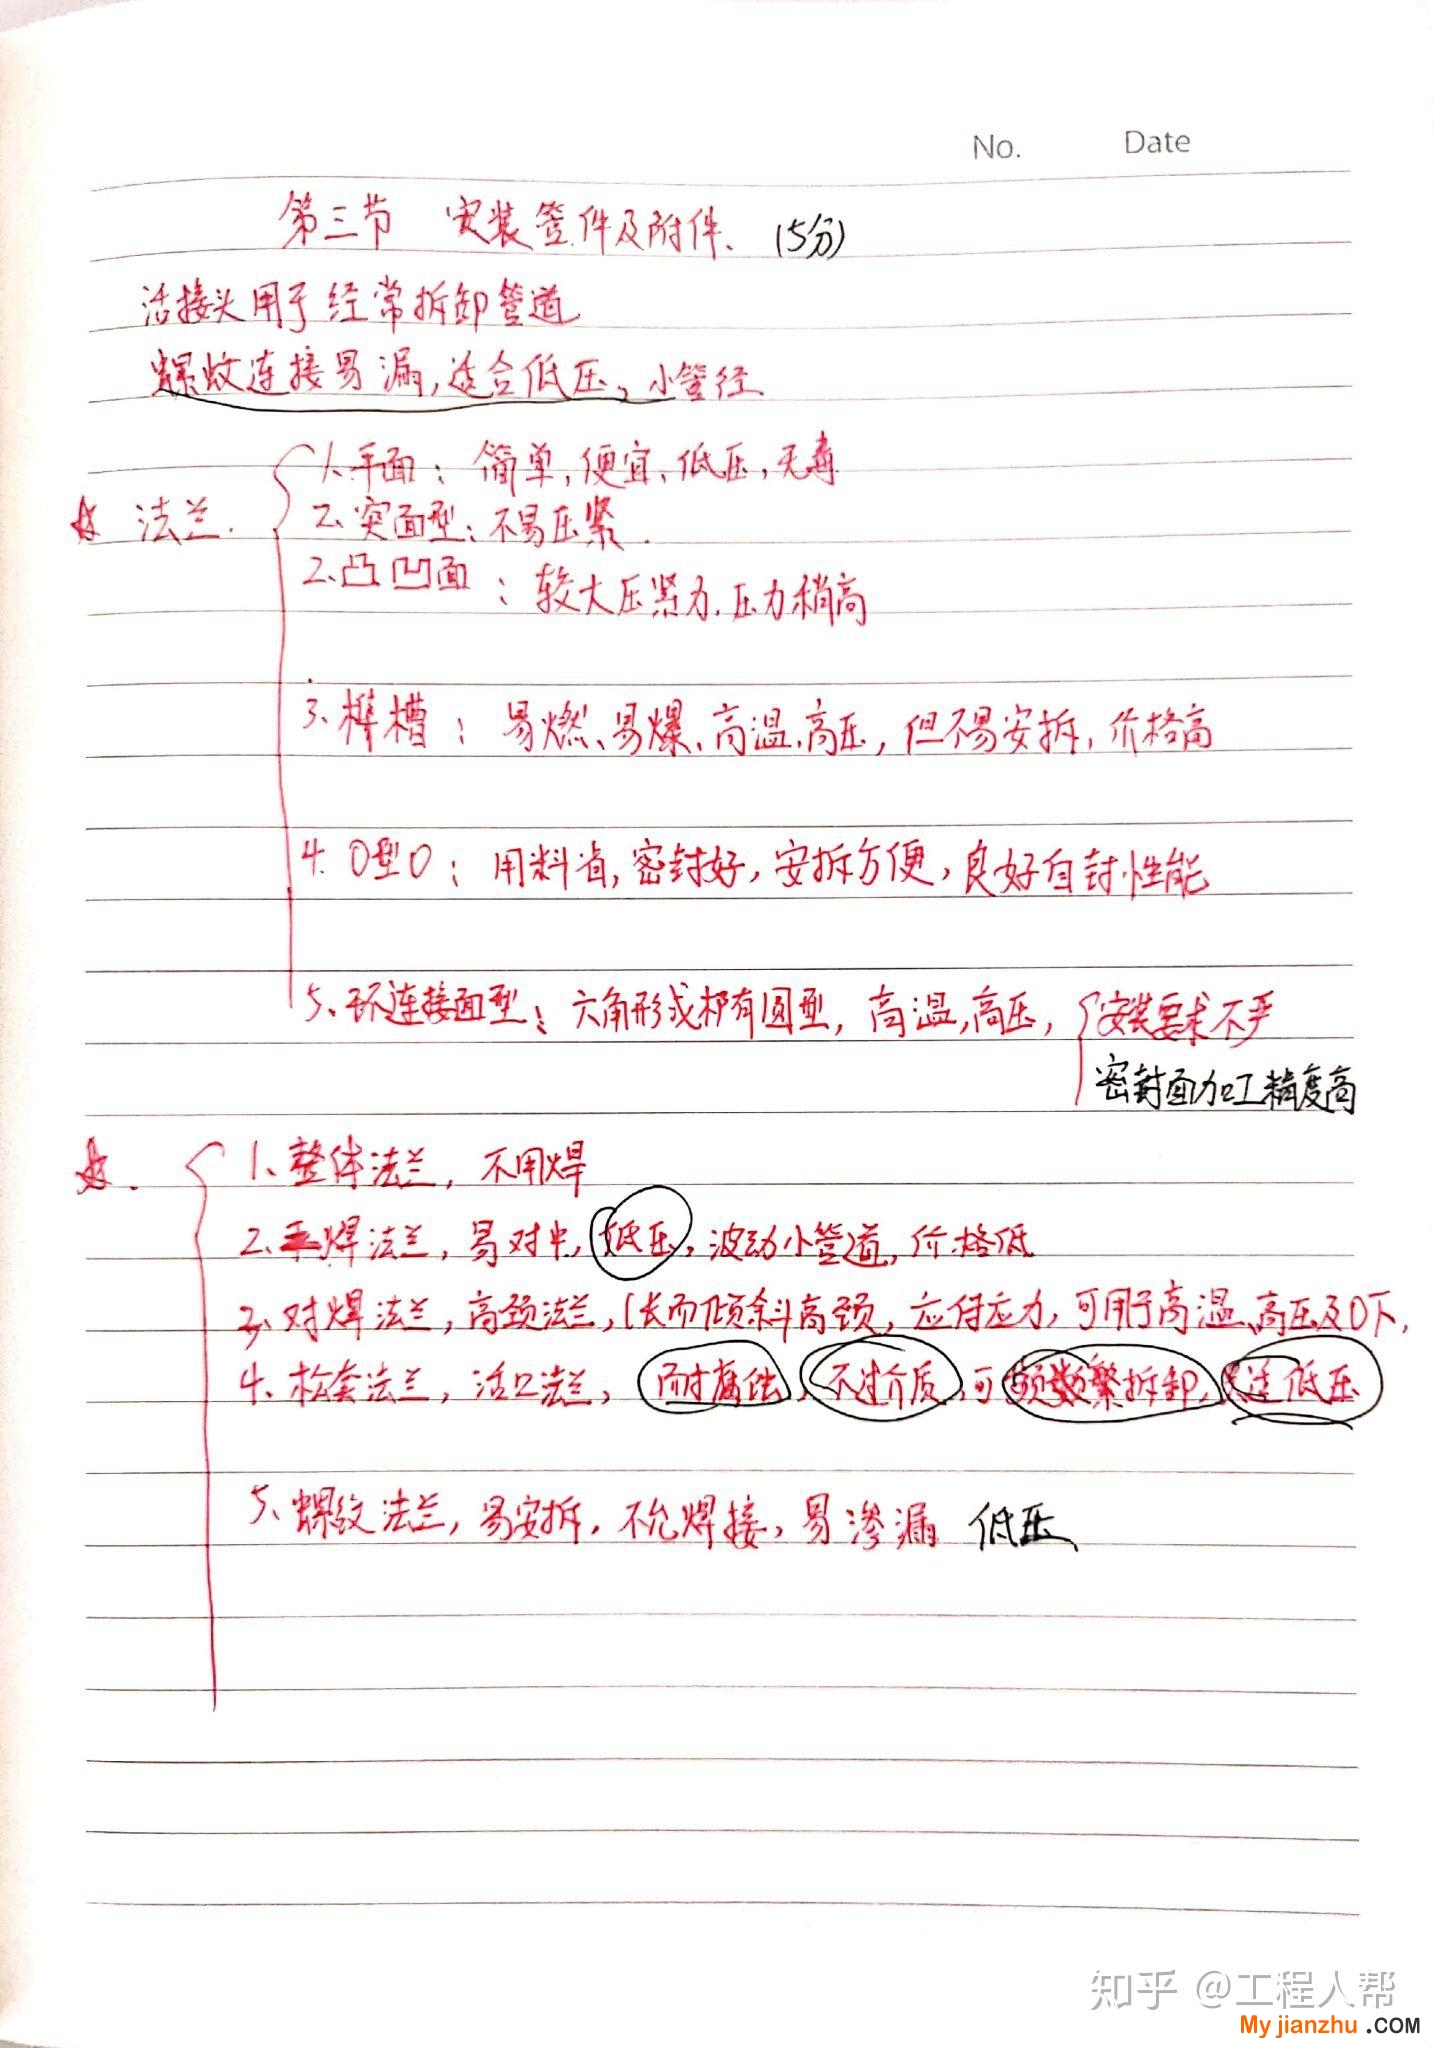 No. Date
第三节 安装管件及附件、(5分)
活接头用于经常拆卸管道
螺纹连接易漏,适合低压,小管径
1、平面：简单,便宜、低压,无毒
☆ 法兰.
2、突面型：不易压紧.
2、凸凹面：较大压紧力.压力稍高
3、榫槽：易燃、易爆、高温、高压,但不易安拆,价格高
4、O型O：用料省,密封好,安拆方便,良好自封性能
5、环连接面型：六角形或椭圆型,高温,高压,安装要求不严
密封面加工精度高
☆.
1、整体法兰,不用焊
2、平焊法兰,易对中,低压,波动小管道,价格低
3、对焊法兰,高颈法兰,(长而倾斜高颈,应付应力,可用于高温、高压及0下,
4、松套法兰,活口法兰,耐腐蚀,不过介质,可频繁拆卸,适低压
5、螺纹法兰,易安拆,不允焊接,易渗漏 低压、
知乎 @工程人帮
Myjianzhu.COM